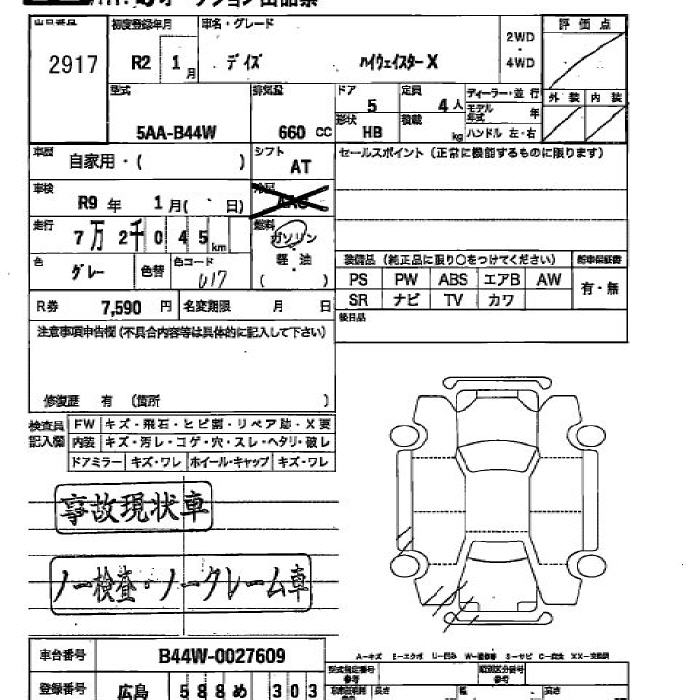 オークション出品票
出品番号 初度登録年月 車名・グレード 評価点
2917 R2 1月 デイズ ハイウェイスターX 2WD・4WD
型式 排気量 ドア 定員 ディーラー・並行 外装 内装
5AA-B44W 660 CC 5 4人 モデル年式 年
形状 HB 積載 kg ハンドル 左・右
車歴 自家用・( ) シフト AT セールスポイント(正常に機能するものに限ります)
車検 R9年 1月( ・ 日) 冷房 AAC
走行 7万2千045km 燃料 ガソリン・軽油 ( )
色 グレー 色替 色コード U17
装備品(純正品に限り○をつけてください) 新車保証書
PS PW ABS エアB AW 有・無
SR ナビ TV カワ
R券 7,590円 名変期限 月 日 後日品
注意事項申告欄(不具合内容等は具体的に記入して下さい)
修復歴 有 (箇所 )
検査員記入欄 FW キズ・飛石・ヒビ割・リペア跡・X要
内装 キズ・汚レ・コゲ・穴・スレ・ヘタリ・破レ
ドアミラー キズ・ワレ ホイール・キャップ キズ・ワレ
事故現状車
ノー検査・ノークレーム車
車台番号 B44W-0027609
A-キズ E-エクボ U-凹み W-補修跡 S-サビ C-腐食 XX-交換済
登録番号 広島 588め 303
型式指定番号 参考 類別区分番号 参考
長さ 幅 高さ